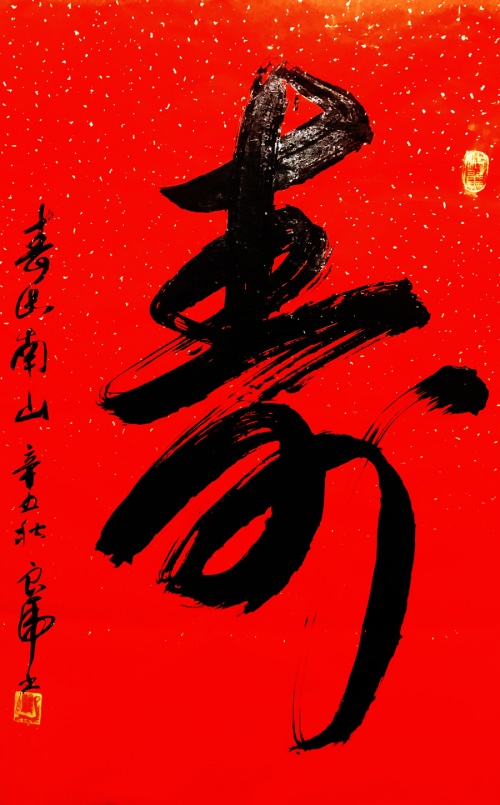 寿
寿比南山 辛丑秋